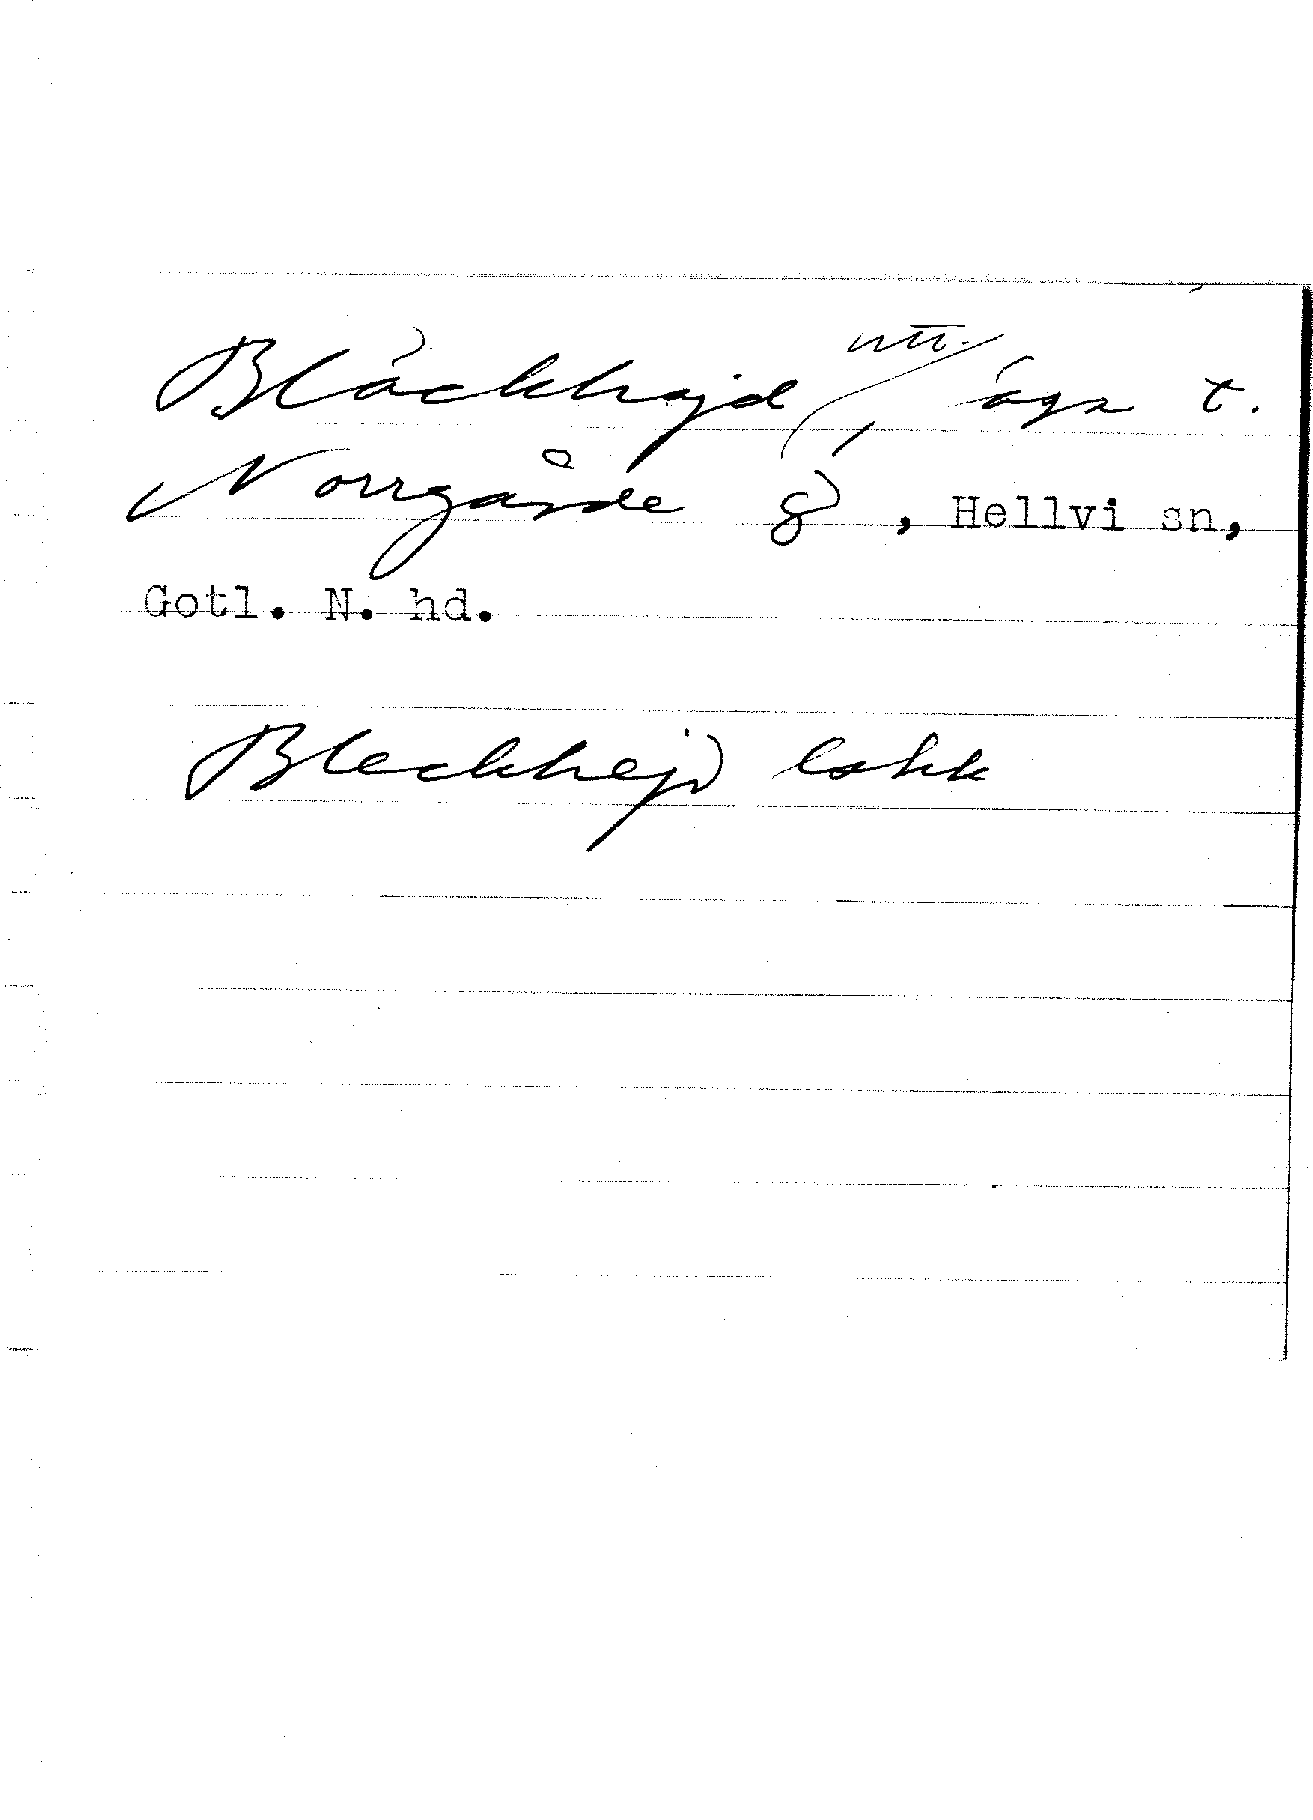 Bläckhajd, ägr t.
Norrgårde g, Hellvi sn,
Gotl. N. hd.
Bleckhejd